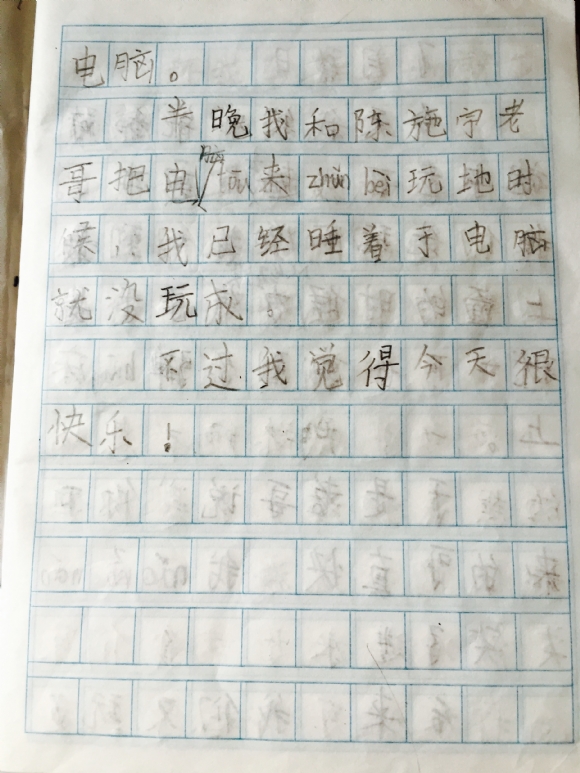 电脑。
半晚我和陈施宇老
哥把电脑tōu来zhǔn bèi玩地时
候，我已经睡着于电脑
就没玩成。
不过我觉得今天很
快乐！